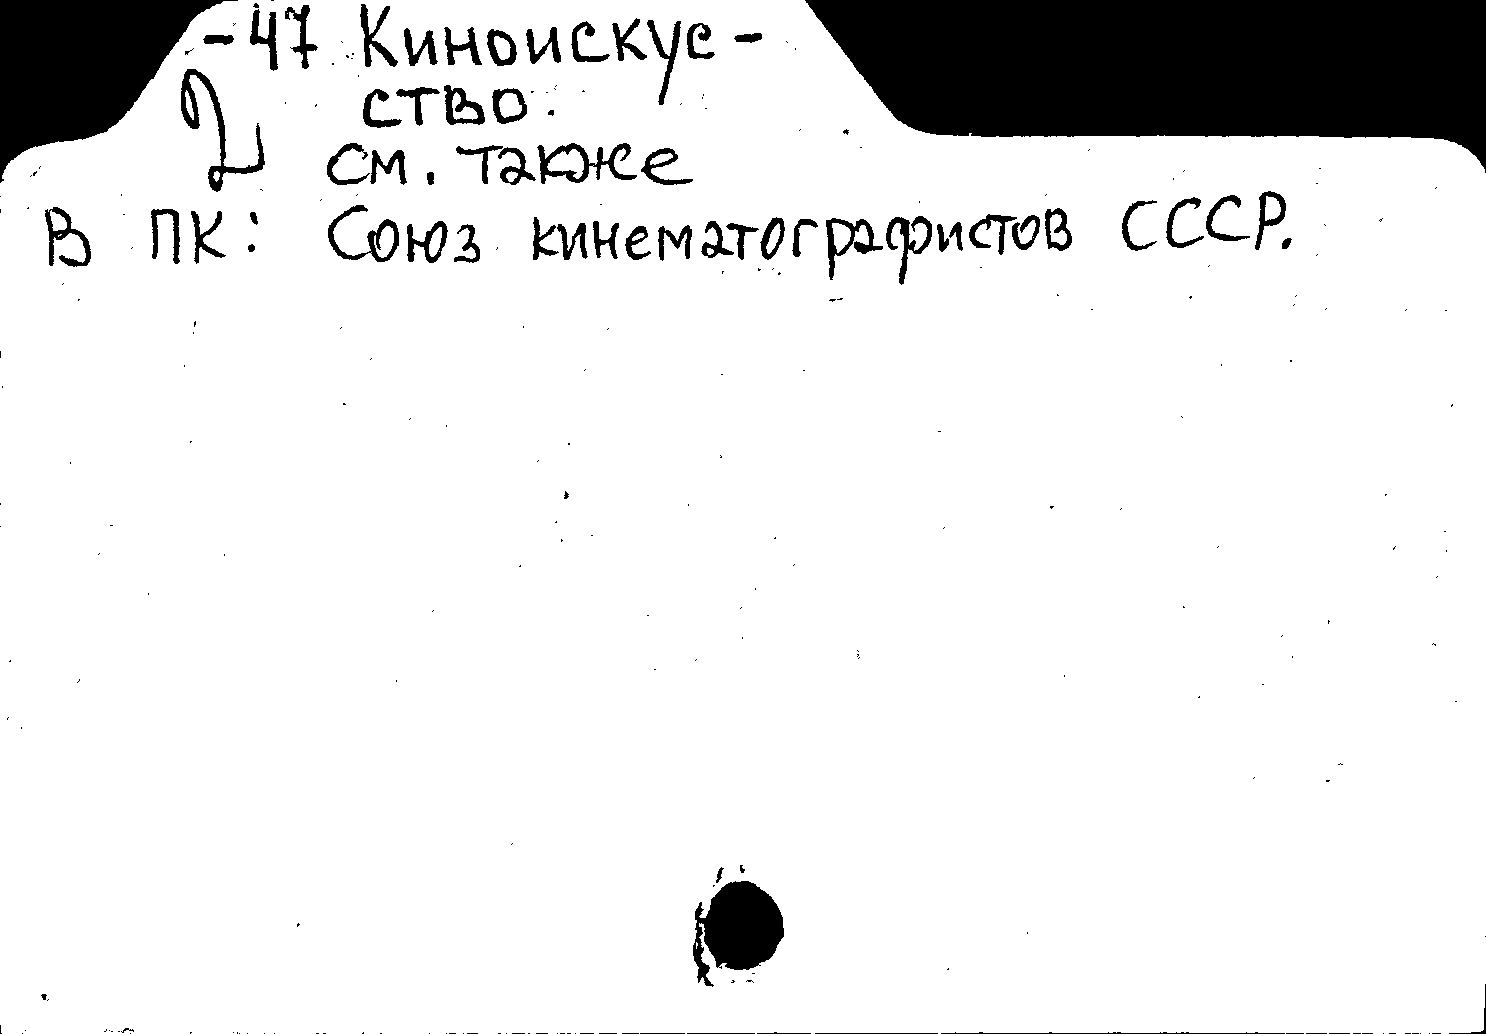 -47 Киноискус-
2 ство.
см. также
В ПК: Союз кинематографистов СССР.